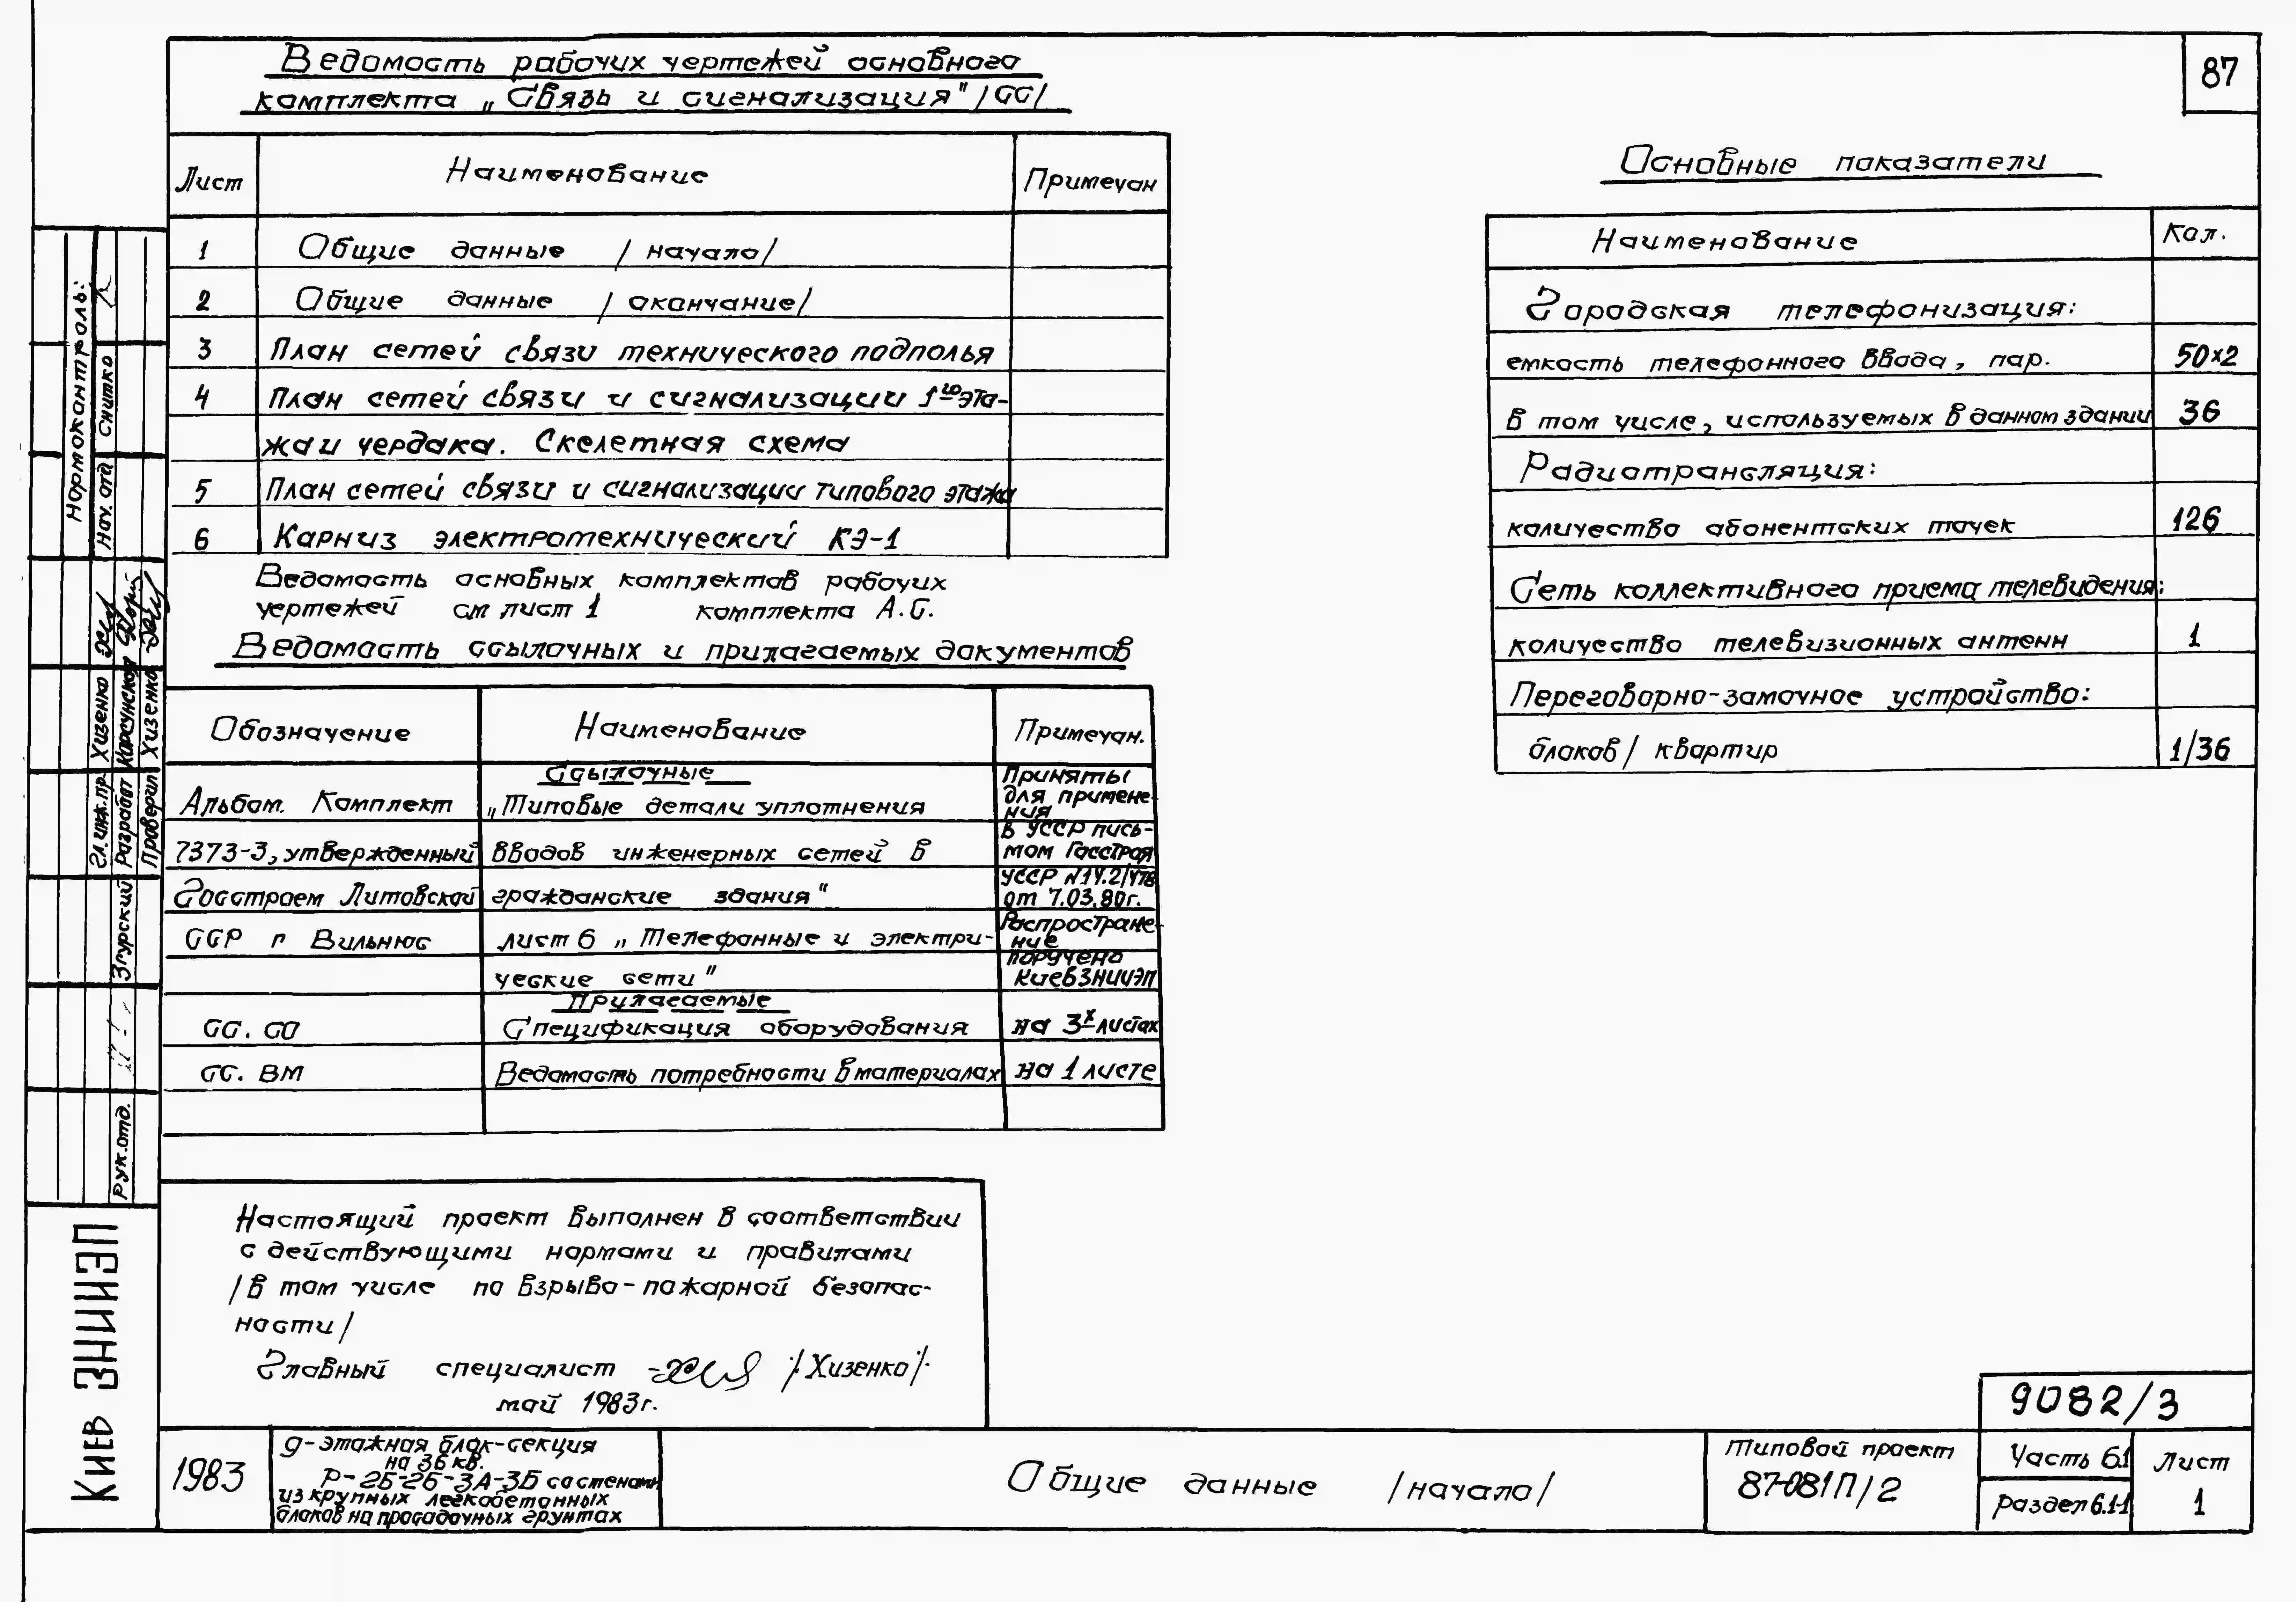 87
Ведомость рабочих чертежей основного
комплекта „Связь и сигнализация" /СС/
Лист Наименование Примечан
1 Общие данные /начало/
2 Общие данные /окончание/
3 План сетей связи технического подполья
4 План сетей связи и сигнализации 1го эта-
жа и чердака. Скелетная схема
5 План сетей связи и сигнализации типового этажа
6 Карниз электротехнический КЭ-1
Ведомость основных комплектов рабочих
чертежей см лист 1 комплекта А.С.
Ведомость ссылочных и прилагаемых документов
Обозначение Наименование Примечан.
Ссылочные
Альбом. Комплект „Типовые детали уплотнения
7373-3, утвержденный вводов инженерных сетей в
Госстроем Литовской гражданские здания"
ССР г Вильнюс лист 6 „Телефонные и электри-
ческие сети"
Приняты
для примене-
ния
в УССР пись-
мом Госстроя
УССР
от 7.03.80г.
Распростране-
ние
поручено
КиевЗНИИЭП
Прилагаемые
СС. СО Спецификация оборудования на 3х листах
СС. ВМ Ведомость потребности в материалах на 1 листе
Основные показатели
Наименование Кол.
Городская телефонизация:
емкость телефонного ввода, пар. 50х2
в том числе, используемых в данном здании 36
Радиотрансляция:
количество абонентских точек 126
Сеть коллективного приема телевидения:
количество телевизионных антенн 1
Переговорно-замочное устройство:
блоков/ квартир 1/36
Настоящий проект выполнен в соответствии
с действующими нормами и правилами
/в том числе по взрыво-пожарной безопас-
ности/
Главный специалист /Хизенко/
май 1983г.
Нормоконтроль:
Нач. отд Снитко
Гл.инж.пр. Хизенко
Разработ
Проверил Хизенко
Рук.отд. Згурский
Киев ЗНИИЭП
1983
9-этажная блок-секция
на 36 кв.
Р-2Б-2Б-3А-3Б со стенами
из крупных легкобетонных
блоков на просадочных грунтах
Общие данные /начало/
Типовой проект
87-081П/2
9082/3
Часть 6.1
Раздел 6.1-1
Лист
1